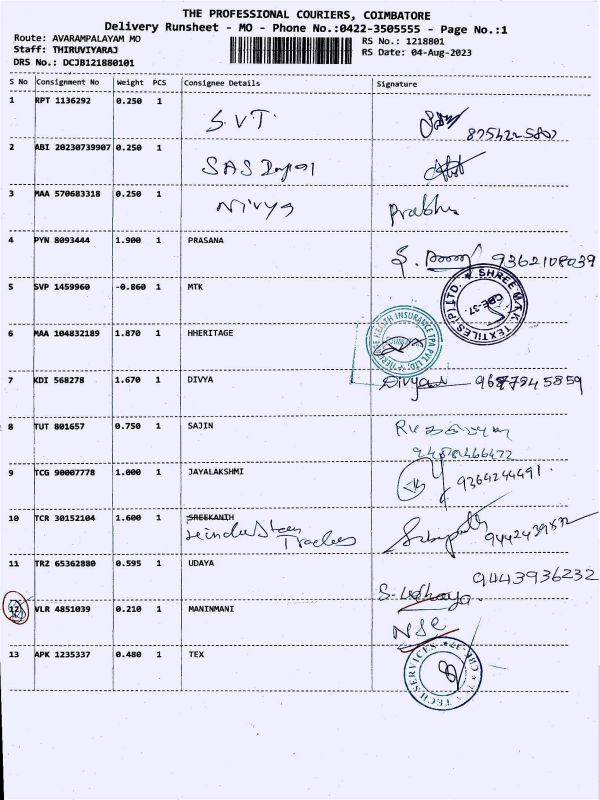 THE PROFESSIONAL COURIERS, COIMBATORE
Delivery Runsheet - MO - Phone No.:0422-3505555 - Page No.:1
Route: AVARAMPALAYAM MO
Staff: THIRUVIYARAJ
DRS No.: DCJB121880101
RS No.: 1218801
RS Date: 04-Aug-2023
S No Consignment No Weight PCS Consignee Details Signature
1 RPT 1136292 0.250 1 S.V.T.
2 ABI 20230739907 0.250 1 SAS
3 MAA 570683318 0.250 1 Nivya Prabhu
4 PYN 8093444 1.900 1 PRASANA 9362108039
5 SVP 1459960 -0.860 1 MTK SHREE M.T.K. TEXTILES (P) LTD. CBE-37.
6 MAA 104832189 1.870 1 HHERITAGE HERITAGE HEALTH INSURANCE TPA PVT LTD
7 KDI 568278 1.670 1 DIVYA Divya
8 TUT 801657 0.750 1 SAJIN
9 TCG 90007778 1.000 1 JAYALAKSHMI 9364244491.
10 TCR 30152104 1.600 1 SREEKANTH
Traders
11 TRZ 65362880 0.595 1 UDAYA 9443936232
S. Udhaya.
12 VLR 4851039 0.210 1 MANINMANI NSC
13 APK 1235337 0.480 1 TEX TECH SERVICES